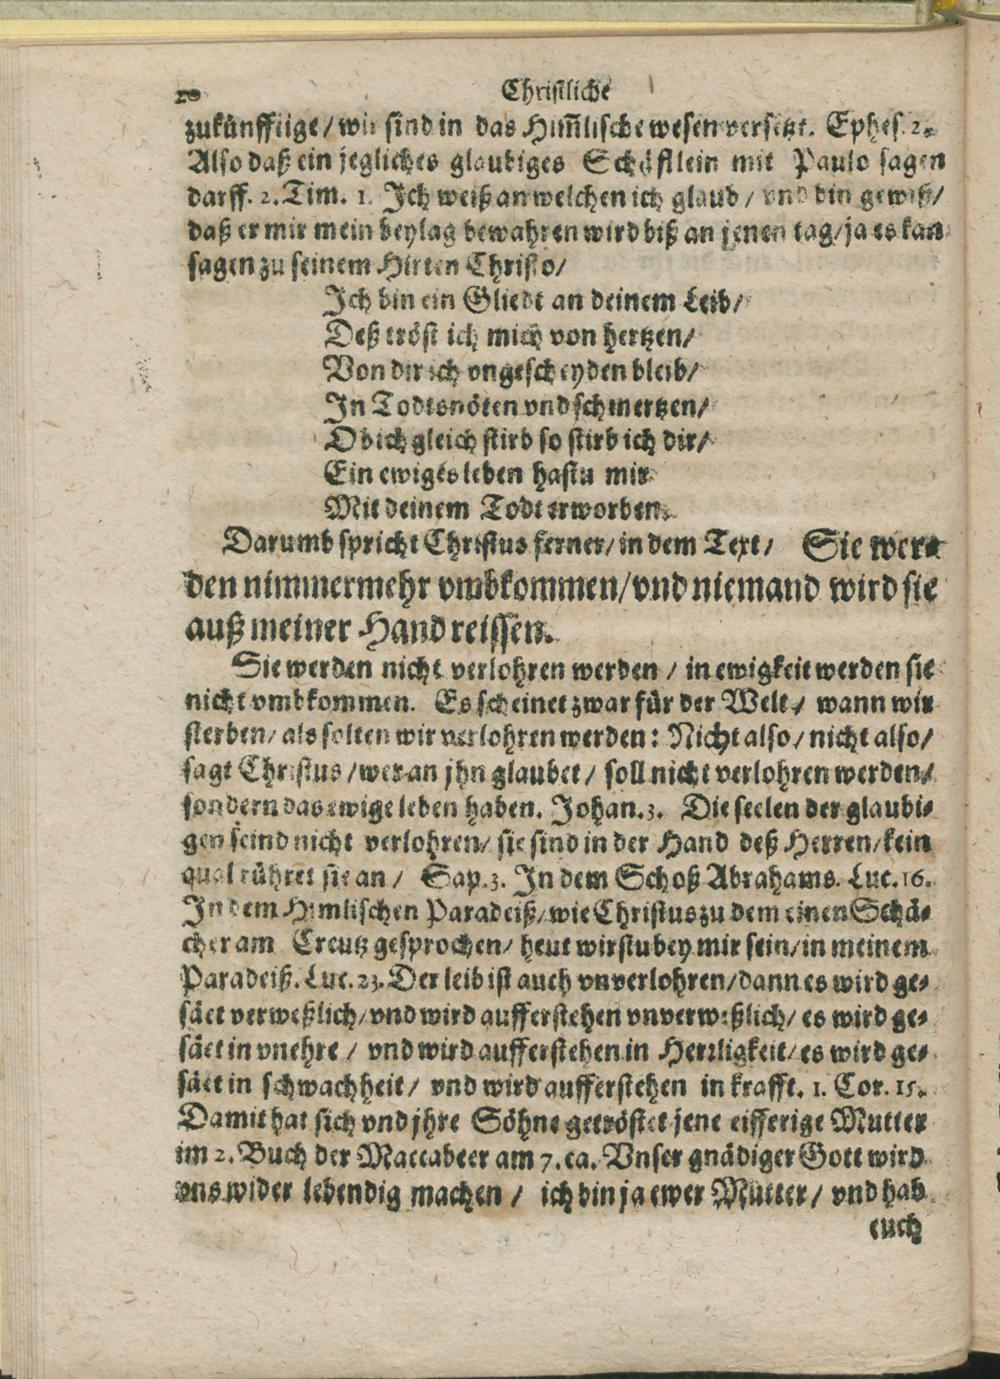 20 Christliche
zukünfftige/ wir sind in das Him̃lische wesen versetzt. Ephes. 2.
Also daß ein jegliches glaubiges Schäfflein mit Paulo sagen
darff. 2. Tim. 1. Ich weiß an welchen ich glaub/ vnd bin gewiß/
daß er mir mein beylag bewahren wird biß an jenen tag/ ja es kan
sagen zu seinem Hirten Christo/
Ich bin ein Gliedt an deinem Leib/
Deß tröst ich mich von hertzen/
Von dir ich vngescheyden bleib/
In Todtsnöten vnd schmertzen/
Ob ich gleich stirb so stirb ich dir/
Ein ewiges leben hastu mir
Mit deinem Todt erworben.
Darumb spricht Christus ferner/ in dem Text/ Sie wer-
den nimmermehr vmbkommen/ vnd niemand wird sie
auß meiner Hand reissen.
Sie werden nicht verlohren werden/ in ewigkeit werden sie
nicht vmbkommen. Es scheinet zwar für der Welt/ wann wir
sterben/ als solten wir verlohren werden: Nicht also/ nicht also/
sagt Christus/ wer an jhn glaubet/ soll nicht verlohren werden/
sondern das ewige leben haben. Johan. 3. Die seelen der glaubi-
gen seind nicht verlohren/ sie sind in der Hand deß Herren/ kein
qual rühret sie an/ Sap. 3. In dem Schoß Abrahams. Luc. 16.
In dem Himlischen Paradeiß/ wie Christus zu dem einen Schä-
cher am Creutz gesprochen/ heut wirstu bey mir sein/ in meinem
Paradeiß. Luc. 23. Der leib ist auch vnverlohren/ dann es wird ge-
säet verweßlich/ vnd wird aufferstehen vnverweßlich/ es wird ge-
säet in vnehre/ vnd wird aufferstehen in Herrligkeit/ es wird ge-
säet in schwachheit/ vnd wird aufferstehen in krafft. 1. Cor. 15.
Damit hat sich vnd jhre Söhne getröstet jene eifferige Mutter
im 2. Buch der Maccabeer am 7. ca. Vnser gnädiger Gott wird
vns wider lebendig machen/ ich bin ja ewer Mutter/ vnd hab
euch